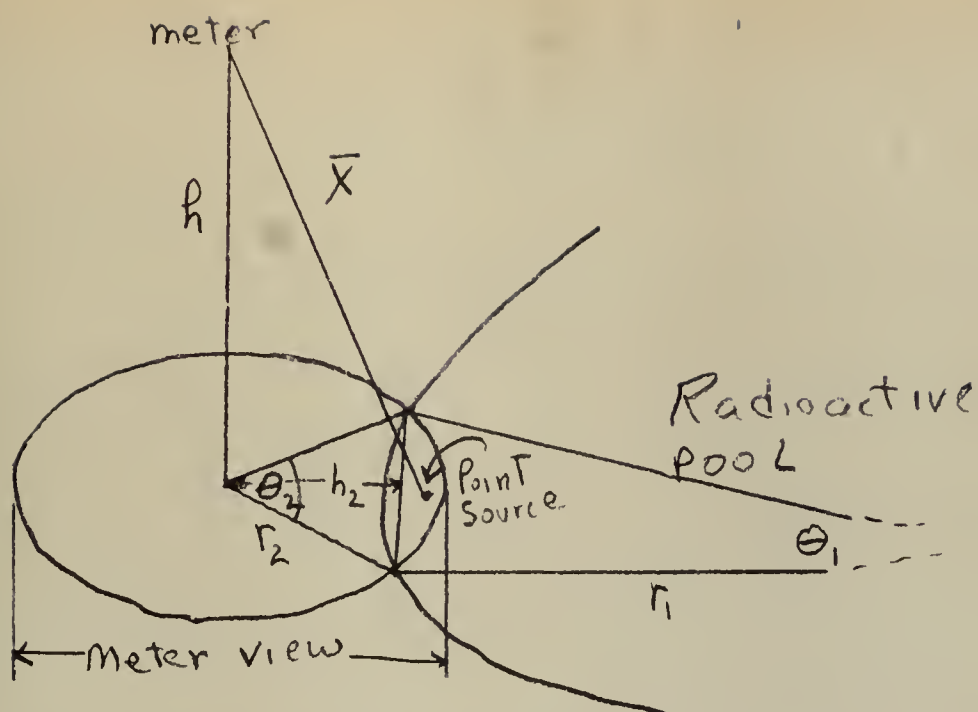 meter
X̄
h
Radioactive
pool
Point
Source
Θ₂
h₂
r₂
Θ₁
r₁
Meter view